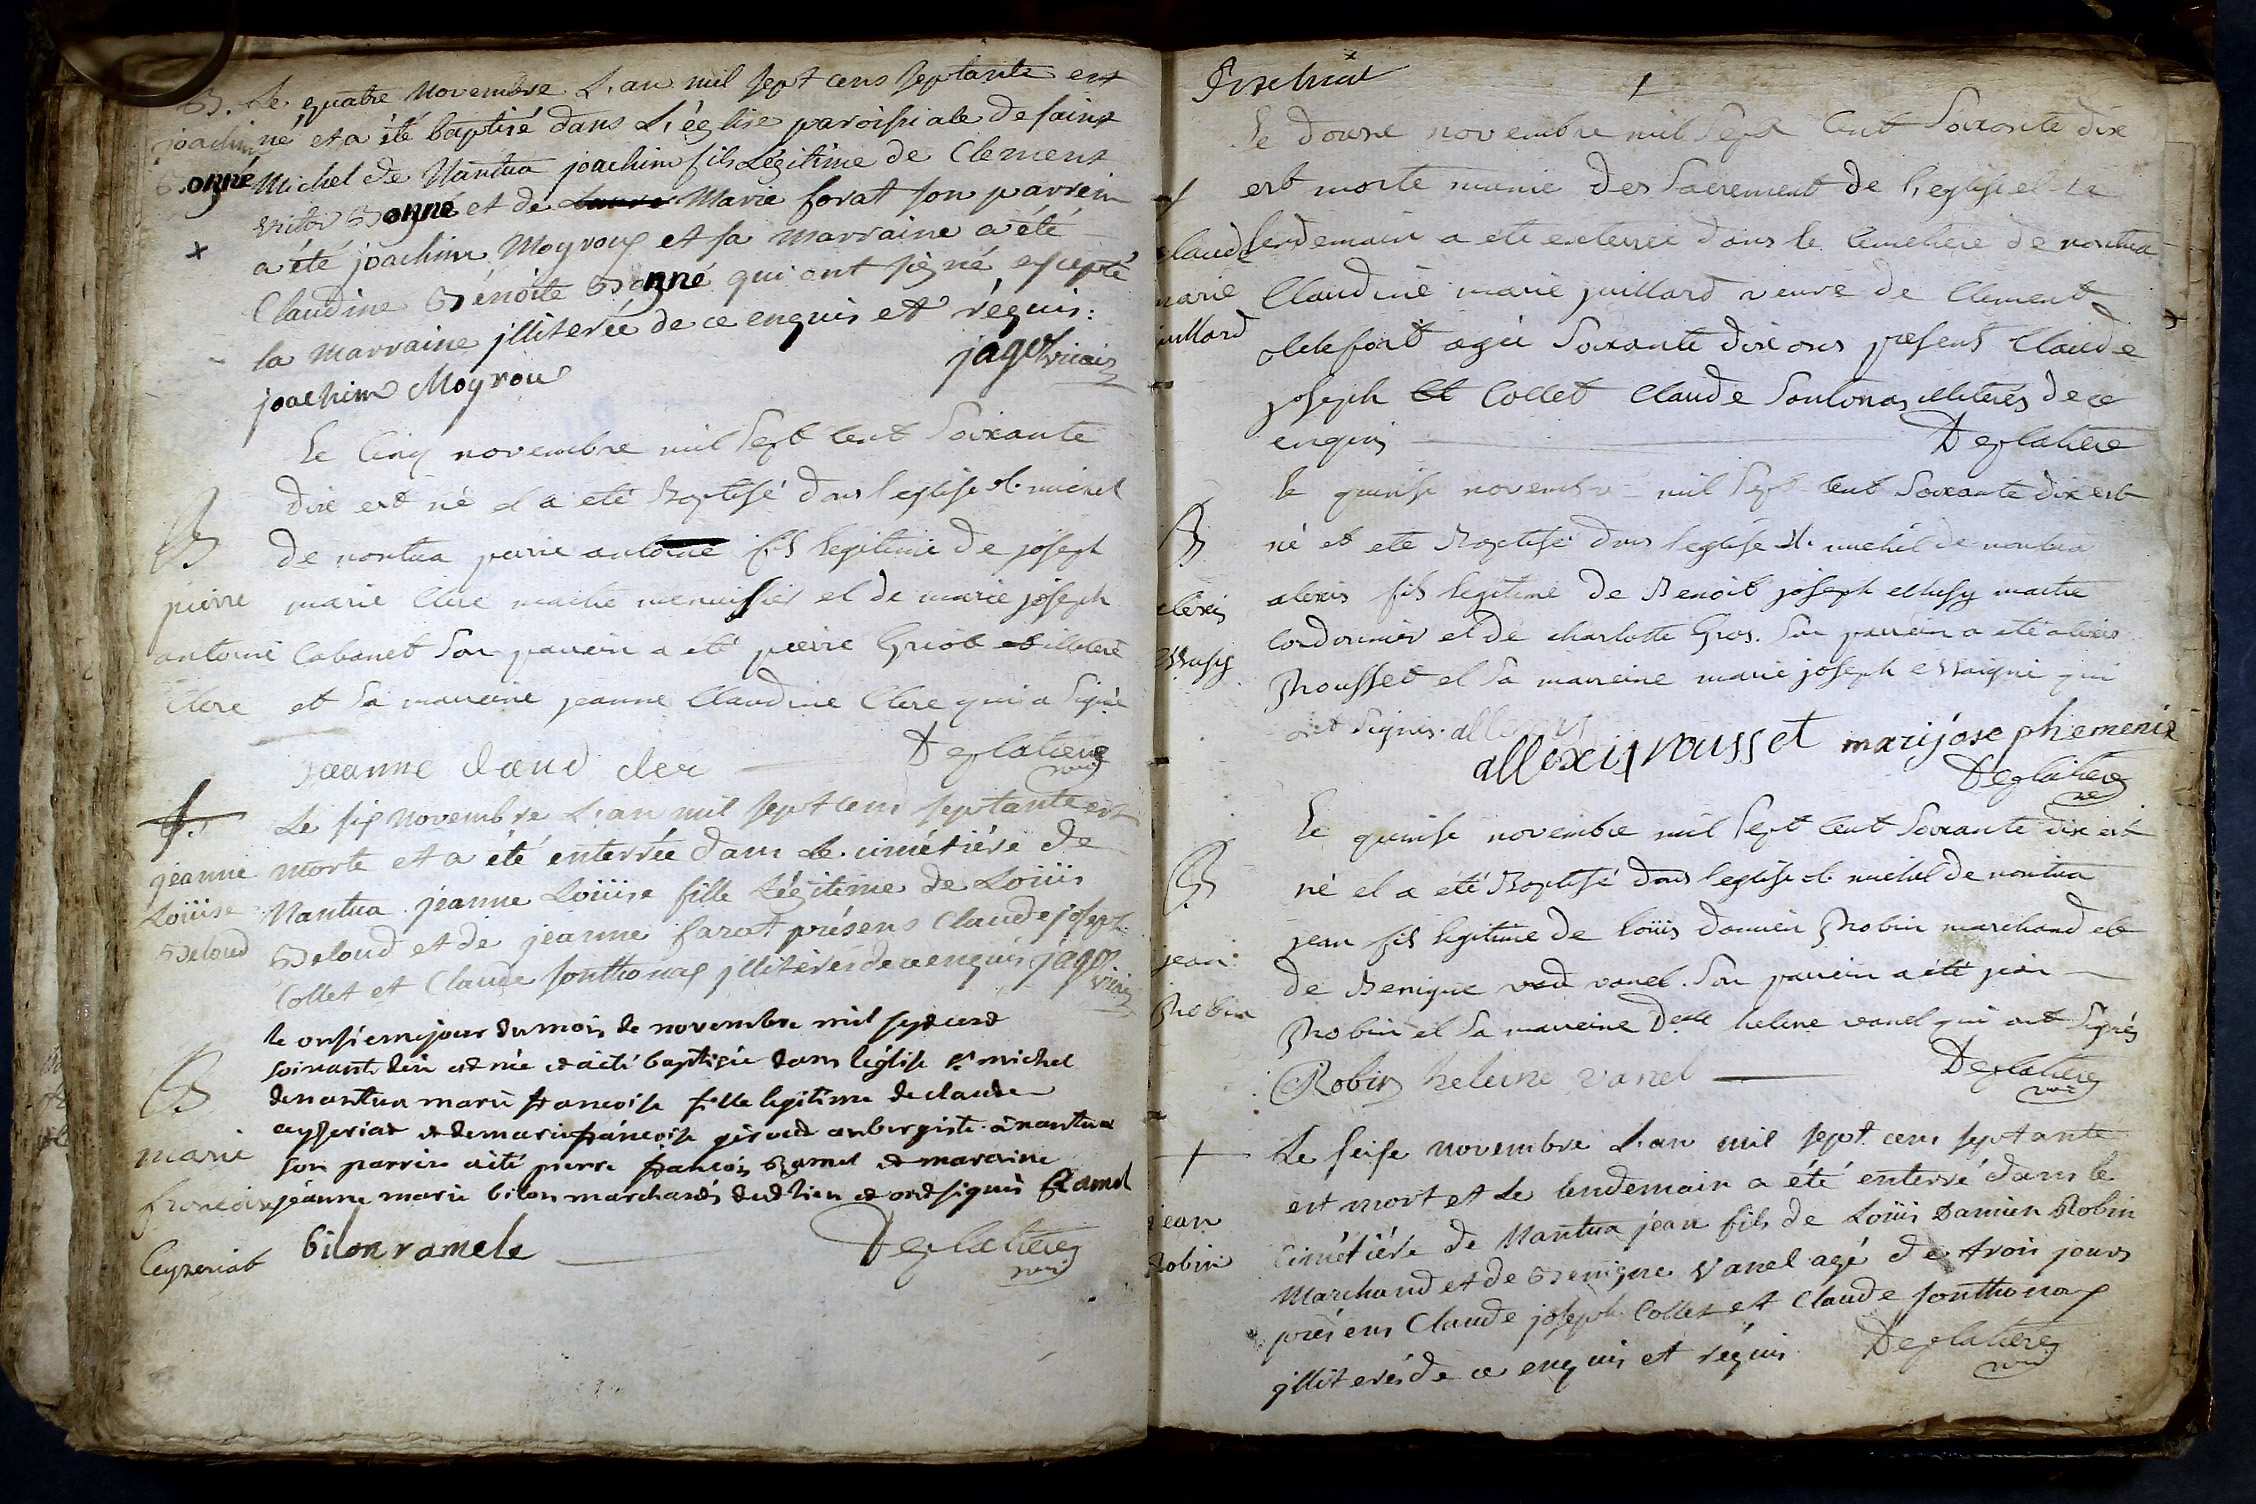 B. Le quatre Novembre L'an mil sept cens septante est
joachim né et a été baptisé dans L'église paroissiale de saint
Bonné Michel de Nantua joachim fils Légitime de Clement
victor Bonné et de Marie forat son parrein
a été joachim Moyroux et sa marraine a été
Claudine Bénoite Bonné qui ont signé excepté
la marraine jlliterée de ce enquis et réquis:
jagot vicair
joachim Moyrou
Le Cinq novembre mil Sept Cent Soixante
dix est né et a eté Baptisé dans l'eglise st. michel
B de nantua pierre antoine fils legitime de joseph
pierre marie Clerc maitre menuisier et de marie joseph
antoine Cabanet Son parrein a eté pierre Griot illeteré
Clerc et Sa marreine jeanne Claudine Clerc qui a Signé
jeanne claud cler Deplatiere
vic
Le six Novembre L'an mil sept cens septante est
jeanne morte et a été enterrée dans Le cimétiére de
Loüise Nantua jeanne Loüise fille Légitime de Loüis
Beloud Beloud et de jeanne farat présens Claude joseph
Collet et Claude sonthonax jlliterés de ce enquis jagot
vicair
le onsieme jour du mois de novembre mil sept cent
soixante dix est née et a eté baptisée dans l'église st michel
B de nantua marie francoise fille legitime de claude
ceyzeriat et de marie françoise giroud aubergiste a nantua
marie son parrein a eté pierre françois Ramel et maraine
francoise jéanne marie bilon marchands dudt lieu et ont signés Ramel
Ceyzeriat bilon ramele Deplatiere
vic
1
Le douze novembre mil Sept Cent Soixante dix
est morte munie des Sacrement de l'eglise et le
Claudi lendemain a eté enterrée dans le Cimetiere de nantua
marie Claudine marie juillard veuve de Clement
juillard agée Soixante dix ans present Claude
joseph Collet Claude Sontonas illeterés de ce
enquis Deplatiere
le quinse novembre mil Sept Cent Soixante dix est
B né et eté Baptisé dans l'eglise st. michel de nantua
alexis alexis fils legitime de Benoit joseph maitre
Cordonnier et de charlotte Gros. Son parrein a eté alexis
Rousset et Sa marreine marie joseph qui
ont Signés.
allexis rousset marijosephemenia
Deplatiere
vic
Le quinse novembre mil Sept Cent Soixante dix est
B né et a eté Baptisé dans l'eglise st. michel de nantua
jean fils legitime de loüis damien Robin marchand et
jean de Benigne vanel. Son parrein a eté jean
Robin Robin et Sa marreine Delle helene vanel qui ont Signés
Robin heleine vanel Deplatiere
vic
Le seise novembre L'an mil sept cens septante
est mort et Le lendemain a été enterré dans le
jean Cimétiére de Nantua jean fils de Loüis Damien Robin
Robin Marchand et de Benigne Vanel agé de trois jours
présens Claude joseph Collet et Claude sonthonax
jlliterés de ce enquis et réquis Deplatiere
vic